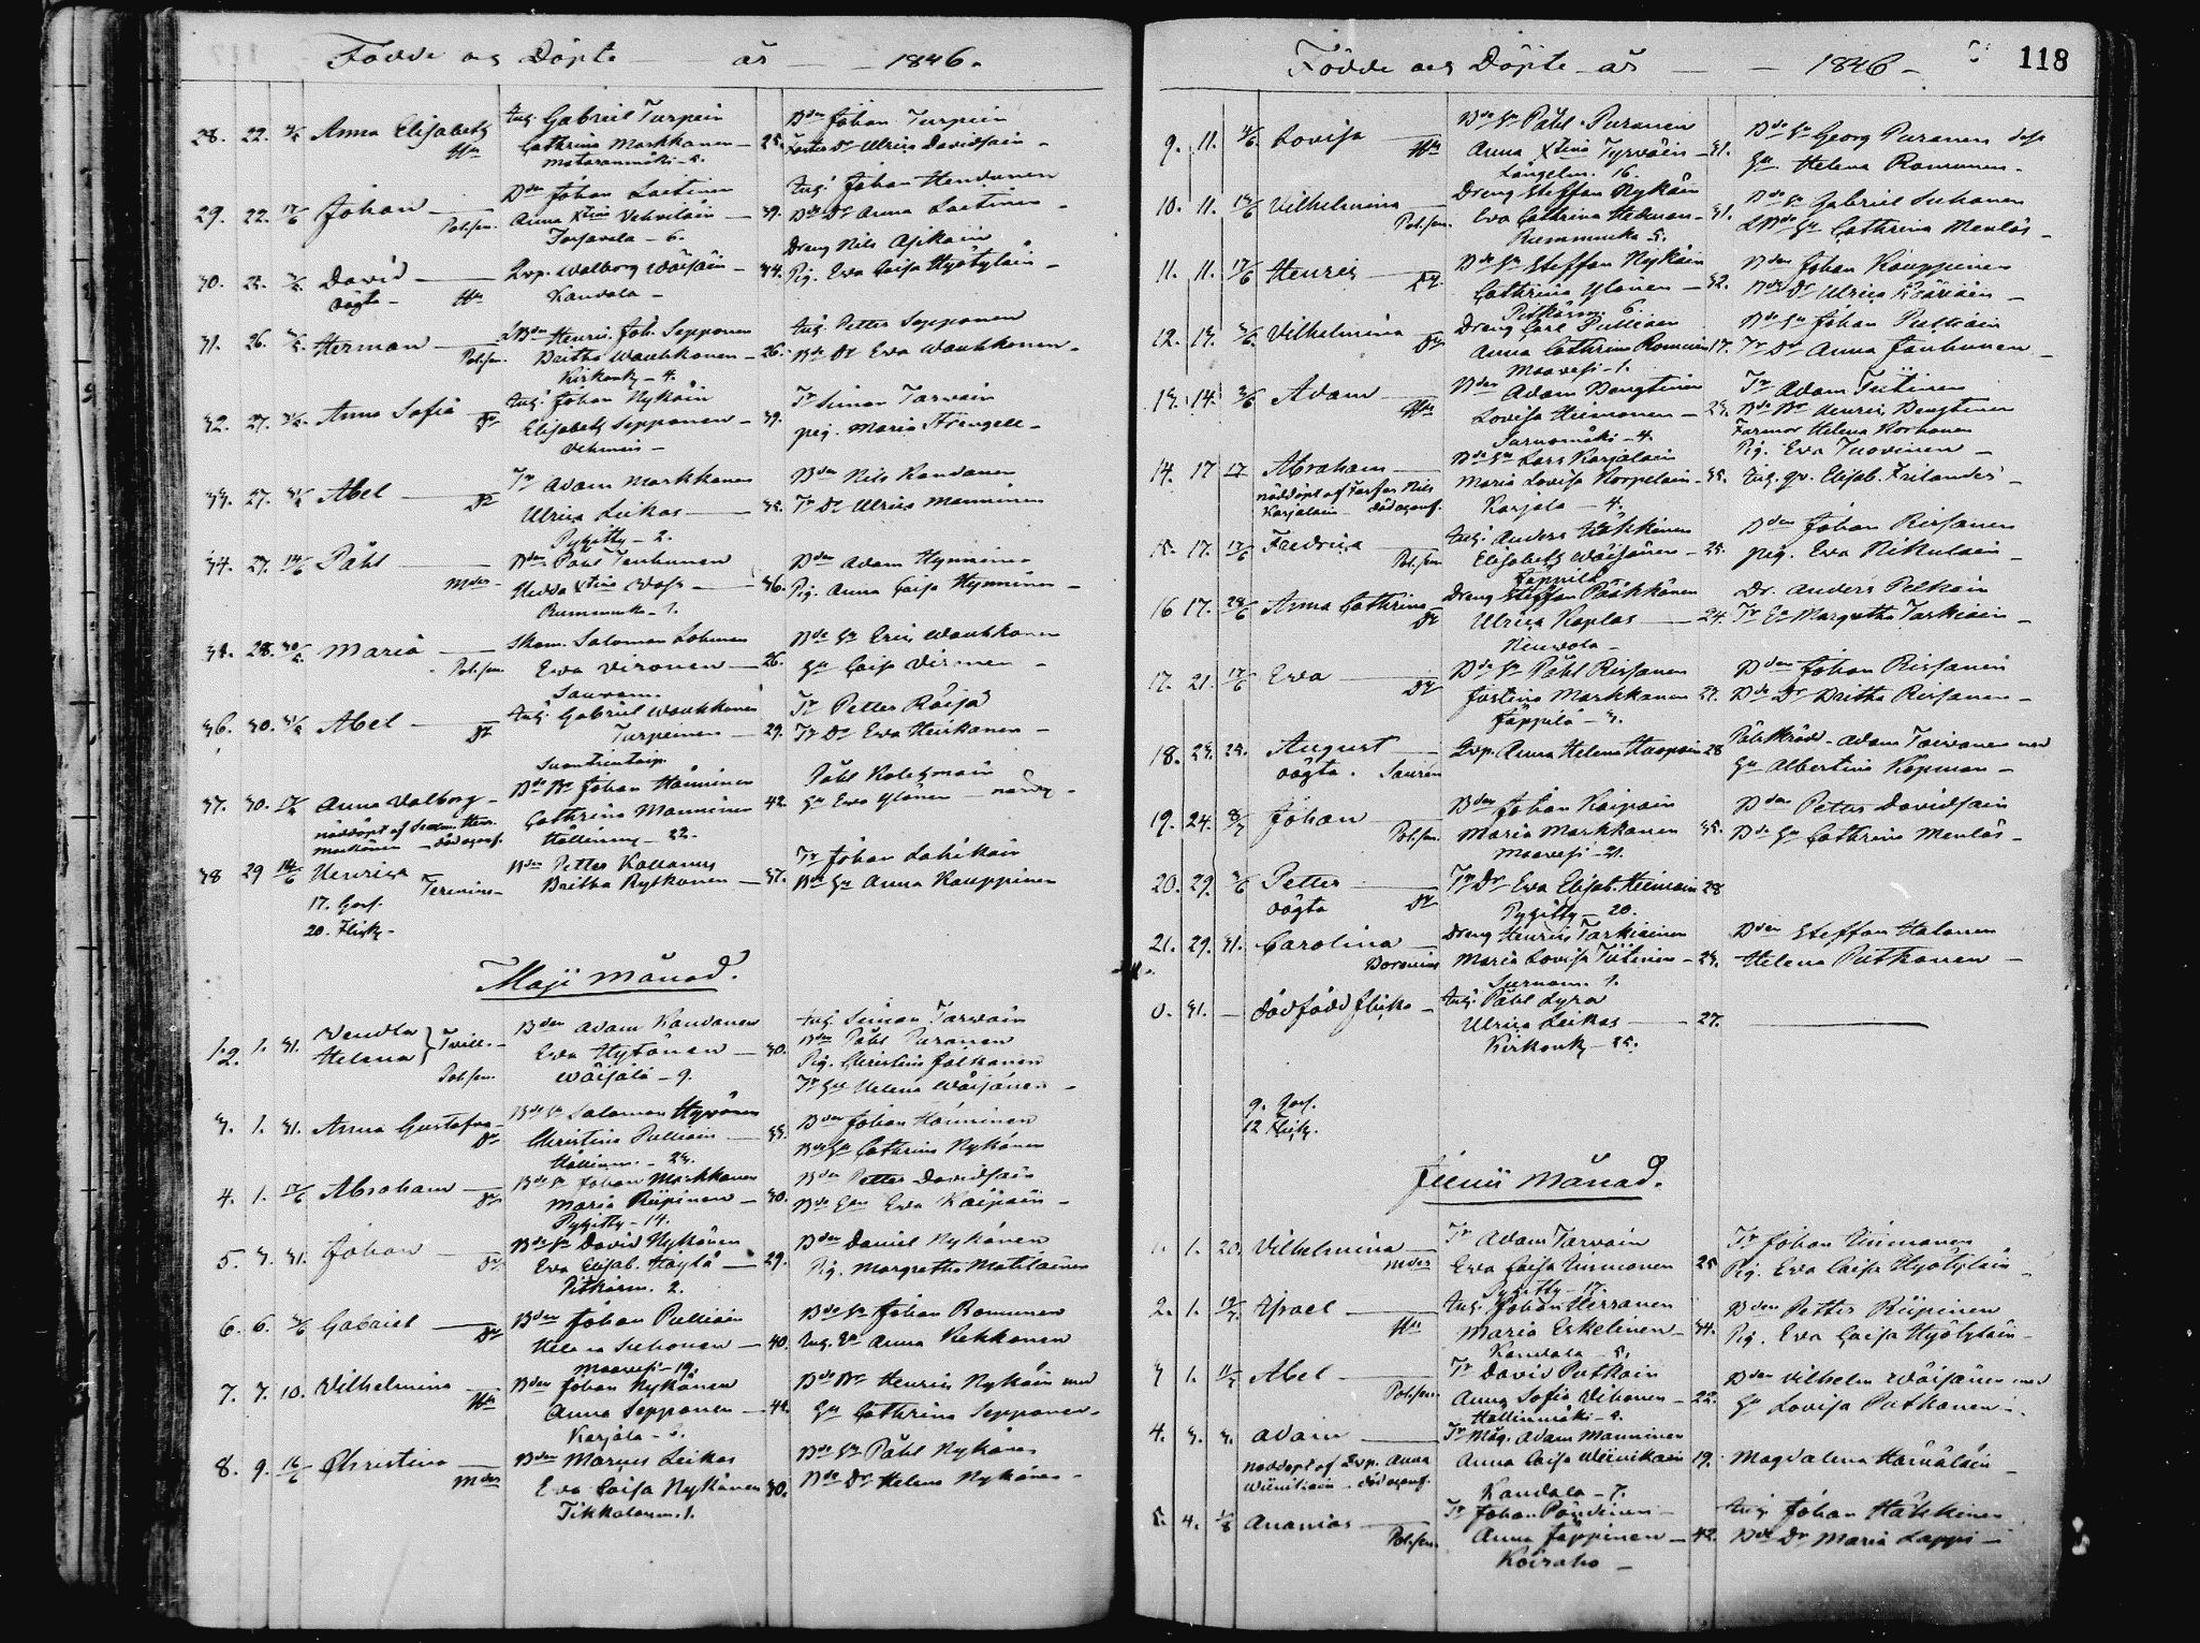 Födde och Döpte år 1846.
28. 22. Anna Elisabeth
Inh. Gabriel Turpein
Cathrina Markkanen 25.
Mataramäki 5.
Bdn Johan Turpein
Dr Ulrica Davidsain
29. 22. 17/6 Johan
Pol.sen.
Bdn Johan Laitinen
Anna Xtina Vehviläin 39.
Torsavela 6.
Inh. Johan Hendunen
Bde Dr Anna Laitinen
30. 22. David
oägta
Qvp. Walborg Wäisäin 44.
Kandala
Dreng Nils Asikain
Pig. Eva Caisa Hyötyläin
31. 26. Herman
Pol.sen
Henric Joh. Sepponen
Britha Wauhkonen 26.
Kirkonky 4.
Inh. Petter Sepponen
Bde Dr Eva Wauhkonen
32. 27. Anna Sofia
Inh. Johan Nykäin
Elisabeth Sepponen 39.
Vehmais
Tr Simon Tarvain
pig. Maria Strengell
33. 27. 31/5 Abel
Tr Adam Markkanen
Ulrica Leikas 35.
Pyhitty 2.
Bdn Nils Kandanen
Tr Dr Ulrica Manninen
34. 27. 14/6 Påhl
Bdn Påhl Tenhunen
Hedda Xtina 36.
Rummuk. 1.
Bdn Adam Hynninen
Pig. Anna Caisa Hynninen
35. 28. 30/5 Maria
Pol.sen
Skom. Salomon Lohman
Eva Vironen 26.
Sauvam.
Bde Sn Eric Wauhkonen
Hu Caisa Vironen
36. 30. 31/5 Abel
Inh. Gabriel Wauhkonen
Turpeinen 29.
Suontientaip.
Tr Petter Räisä
Tr Dr Eva Heiskanen
37. 30. 17/5 Anna Valborg
nöddöpt af
dödagenf.
Bde Br Johan Hänninen
Cathrina Manninen 42.
Hällinmy 22.
Påhl Kolehmain
Hu Eva Ylönen
38 29 14/6 Henrica
Terminen
Bdn Petter Kallanus
Britha Rytkönen 37.
Tr Johan Lahikain
Bde Hu Anna Kauppinen
17. Goss.
20. Flick.
Maji månad.
1.2. 1. 31. Vendla
Helena } Tvill.
Pol.sen.
Bdn Adam Kandanen
Eva Hytönen 30.
Wäisälä 9.
Inh. Simon Tarvain
Bdn Påhl Puranen
Pig. Christina Jalkanen
Tr Hu Helena Wäisänen
3. 1. 31. Anna Gustafva
Bde Sn Salomon Hyvönen
Christina Pulliain 33.
Hällinm. 23.
Bdn Johan Hänninen
Bde Hu Cathrina Nykänen
4. 1. 17/6 Abraham
Bde Sn Johan Markkanen
Maria Riipinen 30.
Pyhitty 14.
Bdn Petter Davidsain
Bde Eva Kaipain
5. 3. 31. Johan
Bde Sn David Nykänen
Eva Elisab. Häyhä 29.
Pitkäsm. 2.
Bdn Daniel Nykänen
Pig. Margretha Matilainen
6. 6. Gabriel
Bdn Johan Pulliain
Helena Suhonen 40.
Maavesi 19.
Bde Sn Johan Romunen
Inh. Anna Kukkonen
7. 7. 10. Vilhelmina
Bdn Johan Nykänen
Anna Sepponen 42.
Karjala
Bde Br Henric Nykäin med
Hu Cathrina Sepponen
8. 9. 16/6 Christina
Bdn Marcus Leikas
Eva Caisa Nykänen 30.
Tikkalanm. 1.
Bde Sn Påhl Nykänen
Bde Dr Helena Nykänen
Födde och Döpte år 1846
118
9. 11. Lovisa
Bde Sn Påhl Puranen
Anna Xtina Tyrväin 31.
Längelm. 16.
Bde Sn Georg Puranen
Hu Helena Romunen
10. 11. 14/6 Vilhelmina
Pol.sen.
Dreng Steffan Nykäin
Eva Cathrina Hedman 31.
Rummuka 5.
Bde Sn Gabriel Suhonen
Cathrina Menläs
11. 11. 17/6 Henric
Bde Sn Steffan Nykäin
Cathrina Ylönen 32.
Pitkäsm. 6.
Bdn Johan Kauppinen
Bde Dr Ulrica Kääriäin
12. 13. Vilhelmina
Dreng Carl Pulliain
Anna Cathrina Romunen 17.
Maavesi 1.
Bde Sn Johan Pulliain
Tr Dr Anna Jauhunen
13. 14. Adam
Bdn Adam Bengtinen
Lovisa Heimonen 23.
Surnomäki 4.
Tr Adam Teitinen
Bde Br Henric Bengtinen
Farmor Helena Korhonen
Pig. Eva Tuovinen
14. 17 17 Abraham
nöddöpt af Farfar Nils
Karjalain dödagenf.
Bde Sn Lars Karjalain
Maria Lovisa Korpelain 35.
Karjala 4.
Inh. qv. Elisab. Frilander
15. 17. 17/6 Fredrica
Pol.sen
Inh. Anders Häkkinen
Elisabeth Wäisänen 25.
Jäppilä
Bdn Johan Rissanen
pig. Eva Nikulain
16 17. 24/6 Anna Cathrina
Dreng Steffan Pääkkönen
Ulrica Kaplas 24.
Neuvola
Dr. Anders Pelkäin
Tr Margretha Tarkiain
17. 21. 17/6 Eva
Bde Sn Påhl Rissanen
Justina Markkanen 27.
Jäppilä 3.
Bdn Johan Rissanen
Bde Dr Britha Rissanen
18. 23. 25. August
oägta. Saurén
Qvp. Anna Helena Huupoin 28
Adam Toivonen med
Hu Albertina Kopman
19. 24. 8/7 Johan
Pol.sen.
Bdn Johan Kaipain
Maria Markkanen 35.
Maavesi 21.
Bdn Petter Davidsain
Bde Hu Cathrina Menläs
20. 29. Petter
oägta
Tr Dr Eva Elisab. Heimoin 28
Pyhitty 20.
21. 29. 31. Carolina
Boranius
Dreng Henric Tarkiainen
Maria Lovisa Tiitinen 23.
Surnom. 1.
Bdn Steffan Halonen
Helena Putkonen
0. 31. dödfödd flicka
Inh. Påhl Lyra
Ulrica Leikas 27.
Kirkonky 25.
9. Goss.
12 Flick.
Junii månad.
1. 1. 20. Vilhelmina
Tr Adam Tarvain
Eva Caisa Immonen 25
Pyhitty 17.
Tr Johan Immonen
Pig. Eva Caisa Hyötyläin
2. 1. 19/7 Israel
Inh. Johan Herranen
Maria Eskelinen 34.
Kandala 5.
Bdn Petter Riipinen
Pig. Eva Caisa Hyötyläin
3 1. 11/7 Abel
Pol.sen
Tr David Putkain
Anna Sofia Vihonen 22.
Hällinmäki 2.
Bdn Vilhelm Wäisänen med
Hu Lovisa Putkonen
4. 3. 3. Adam
nöddöpt af Qvp. Anna
dödagenf.
Tr Måg. Adam Manninen
Anna Caisa Weinikain 19.
Kandala 7.
Magdalena Hämäläin
5. 4. Ananias
Pol.sen.
Tr Johan Pöndinen
Anna Jäppinen 42.
Koiraho
Inh. Johan Häkkinen
Bde Dr Maria Lappi